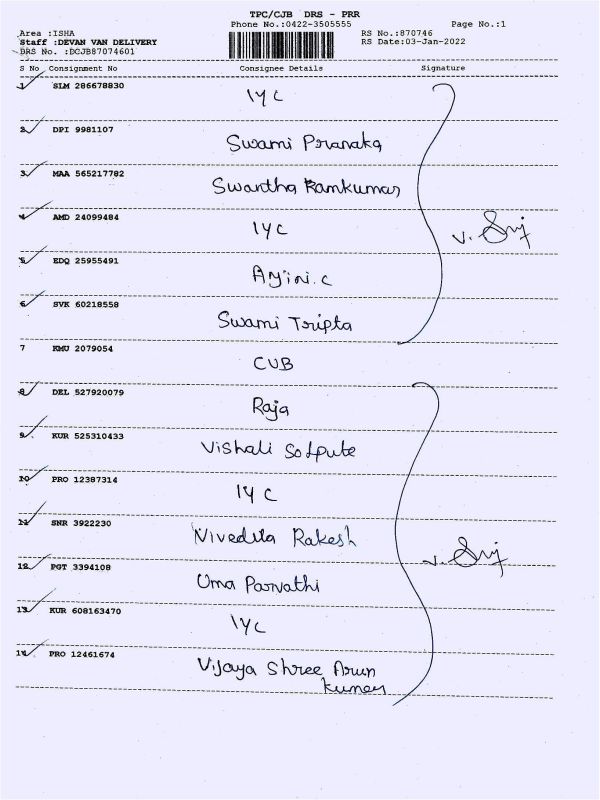 TPC/CJB DRS - PRR
Phone No.:0422-3505555 Page No.:1
Area :ISHA RS No.:870746
Staff :DEVAN VAN DELIVERY RS Date:03-Jan-2022
DRS No. :DCJB87074601
S No Consignment No Consignee Details Signature
1 SLM 286678830
IYC
2 DPI 9981107
Swami Pranaka
3 MAA 565217782
Swartha Ramkumar
4 AMD 24099484
IYC
V.
5 EDQ 25955491
C
6 SVK 60218558
Swami Tripta
7 KMU 2079054
CUB
8 DEL 527920079
Raja
9 KUR 525310433
Vishali Satpute
10 PRO 12387314
IYC
11 SNR 3922230
Nivedita Rakesh
V.
12 PGT 3394108
Uma Parvathi
13 KUR 608163470
IYC
14 PRO 12461674
Vijaya Shree Arun
kumar